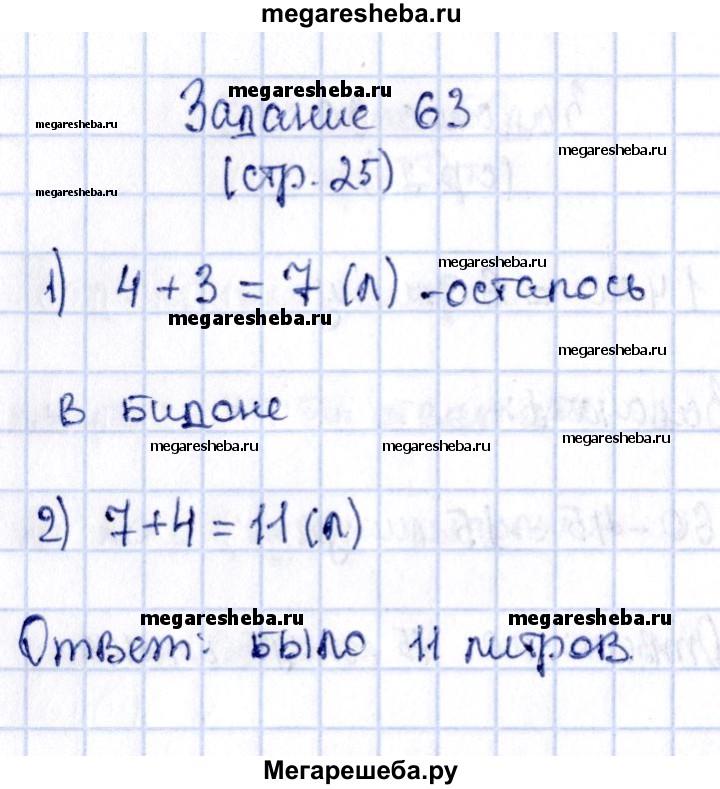 megaresheba.ru
megaresheba.ru
Задание 63
megaresheba.ru
megaresheba.ru
(стр. 25)
megaresheba.ru
megaresheba.ru
1) 4 + 3 = 7 (л) - осталось
megaresheba.ru
megaresheba.ru
в бидоне
megaresheba.ru
megaresheba.ru
megaresheba.ru
2) 7 + 4 = 11 (л)
megaresheba.ru
megaresheba.ru
Ответ: было 11 литров.
Мегарешеба.ру